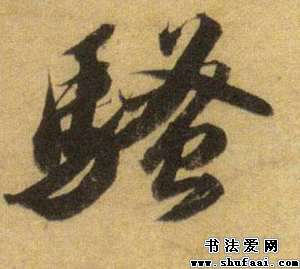 騷
书法爱网
www.shufaai.com